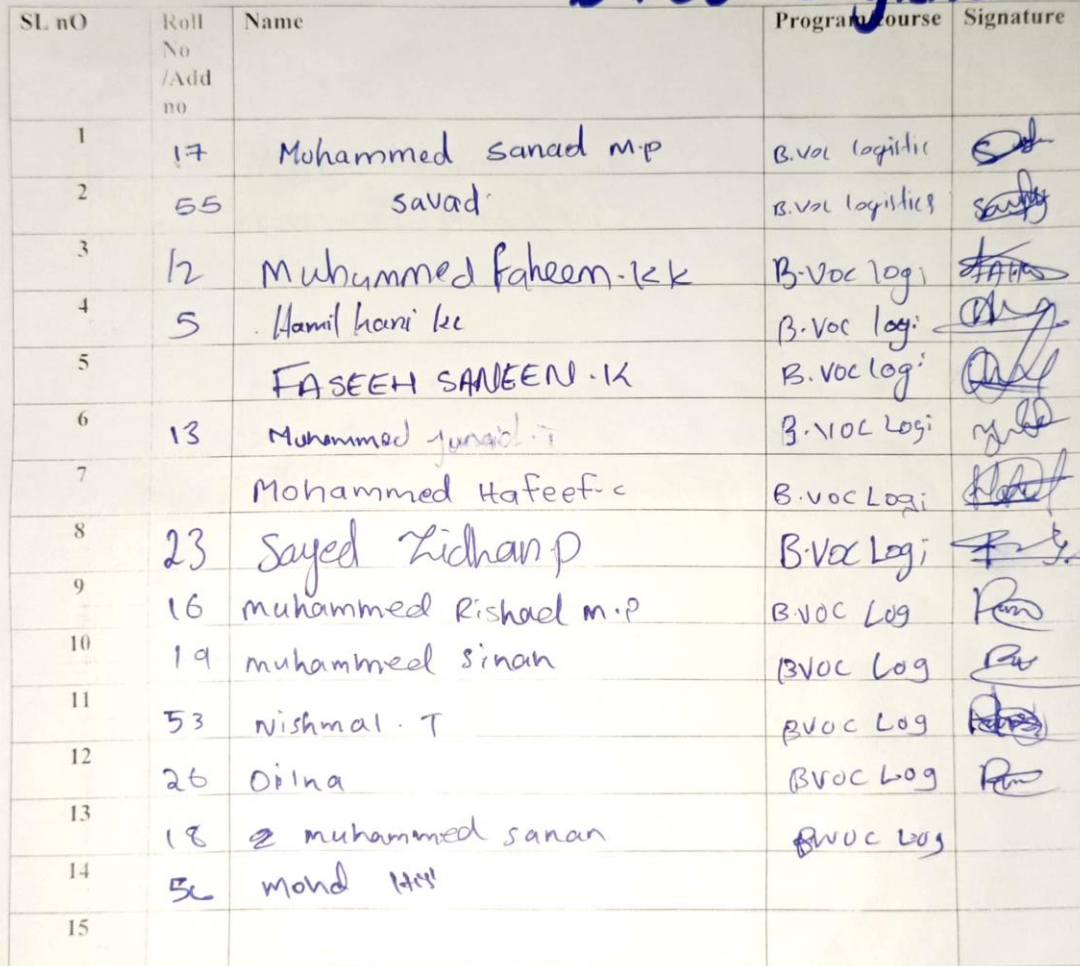 SL nO Roll No /Add no Name Program/Course Signature
1 17 Mohammed Sanad M.P B.voc logistic
2 55 Savad B.voc logistics
3 12 Muhammed Faheem.KK B-Voc logi
4 5 Hamil hani kc B.Voc logi
5 FASEEH SANEEN.K B.voc logi
6 13 Muhammed Junaid.T B.VOC Logi
7 Mohammed Hafeef.c B.voc Logi
8 23 Sayed Zidhan P B.Voc Logi
9 16 muhammed Rishad M.P B.VOC Log
10 19 muhammed Sinan BVOC Log
11 53 Nishmal.T BVOC Log
12 26 Dilna BVOC Log
13 18 muhammed Sanan BVOC Log
14 mohd
15